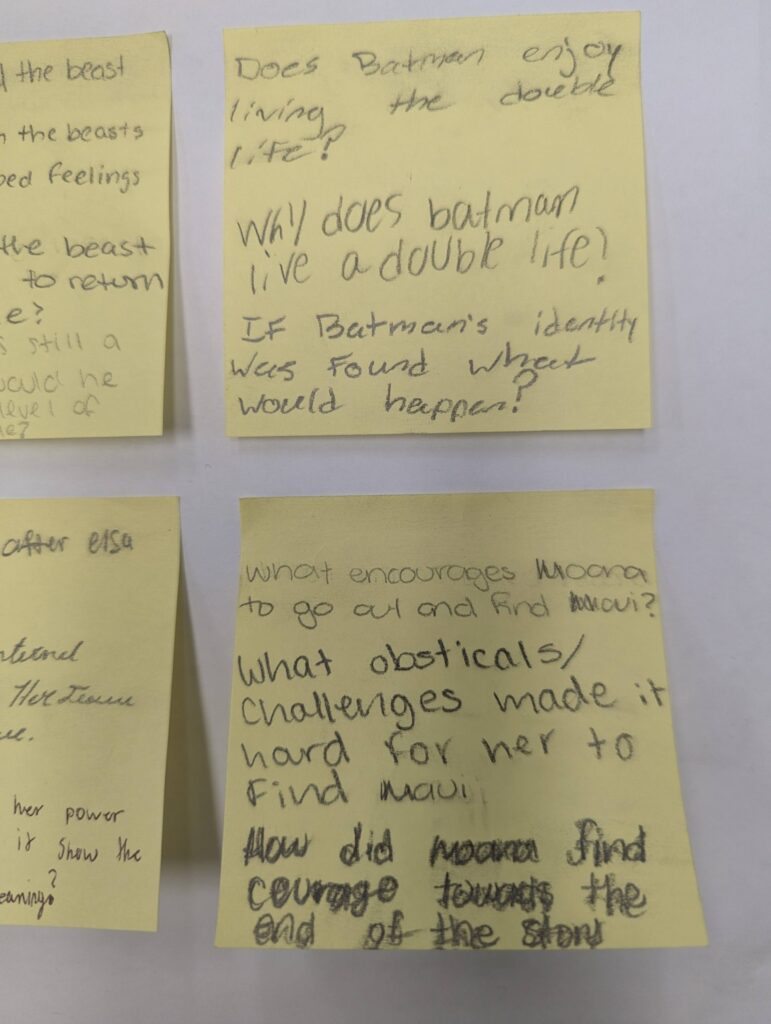 the beast
the beasts
feelings
the beast
to return
e?
s still a
would he
level of
Does Batman enjoy
living the double
life?
Why does batman
live a double life?
If Batman's identity
was found what
would happen?
after elsa
Her Team
her power
it show the
eaning?
What encourages Moana
to go out and find Maui?
What obsticals/
Challenges made it
hard for her to
Find Maui
How did moana find
courage towards the
end of the story